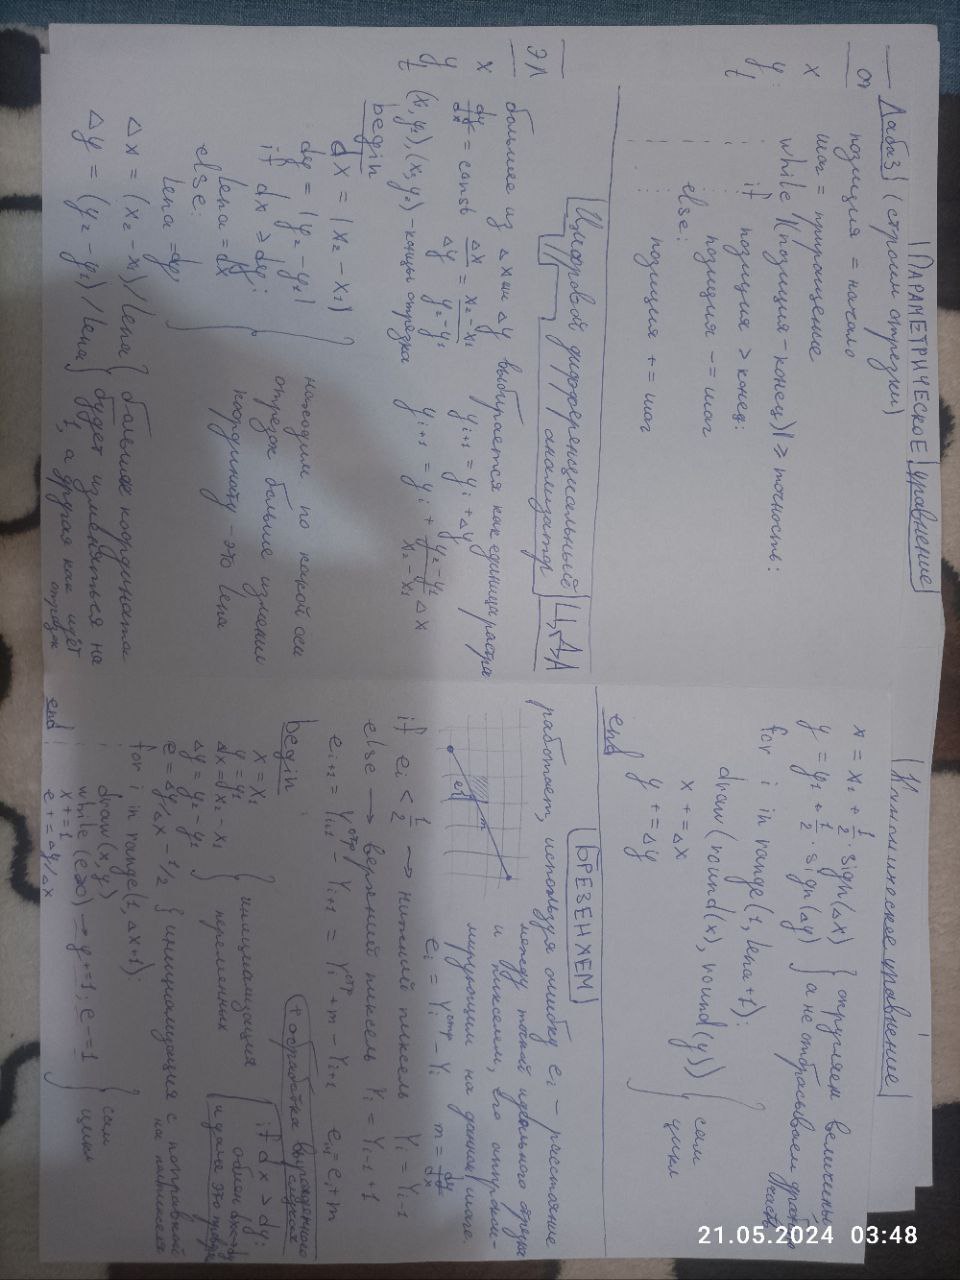 ПАРАМЕТРИЧЕСКОЕ уравнение
Лаба3 (строим отрезки)
позиция = начало
шаг = приращение
while |(позиция - конец)| ≥ точность:
if позиция > конец:
позиция -= шаг
else:
позиция += шаг
Цифровой дифференциальный анализатор ЦДА
большее из Δx или Δy выбирается как единица растра
dy/dx = const Δx/Δy = x₂ - x₁/y₂ - y₁ yᵢ₊₁ = yᵢ + Δy
(x₁ y₁), (x₂ y₂) - концы отрезка yᵢ₊₁ = yᵢ + y₂ - y₁/x₂ - x₁ Δx
begin
dx = |x₂ - x₁|
dy = |y₂ - y₁|
if dx ≥ dy:
lena = dx
else:
lena = dy
находим по какой оси
отрезок больше изменил
координату - это lena
Δx = (x₂ - x₁) / lena
Δy = (y₂ - y₁) / lena
большие координата
будет изменяться на
1, а другая как идёт
отрезок
Каноническое уравнение
x = x₁ + 1/2 · sign(Δx)
y = y₁ + 1/2 · sign(Δy)
округляем величины
а не отбрасываем дробную
часть
for i in range(1, lena+1):
draw(round(x), round(y))
x += Δx
y += Δy
сам
цикл
end
БРЕЗЕНХЕМ
работает, используя ошибку eᵢ - расстояние
между точкой идеального отрезка
и пикселем, его аппрокси-
мирующим на данном шаге.
eᵢ m
eᵢ = Yᵢᵒᵗᵖ - Yᵢ m = dy/dx
if eᵢ < 1/2 → нижний пиксель Yᵢ = Yᵢ₋₁
else → верхний пиксель Yᵢ = Yᵢ₋₁ + 1
= Yᵢ₊₁ᵒᵗᵖ - Yᵢ₊₁ = Yᵢᵒᵗᵖ + m - Yᵢ₊₁ = eᵢ + m
begin
+ обработка вырожденного
случая
x = x₁
y = y₁
Δx = x₂ - x₁
Δy = y₂ - y₁
инициализация
переменных
if dx > dy:
обмен
e = Δy/Δx - 1/2 { инициализация с поправкой
на пикселя
for i in range(1, Δx+1):
draw(x, y)
while (e≥0) → y+=1; e-=1
x += 1
e += Δy/Δx
сам
цикл
end
21.05.2024 03:48